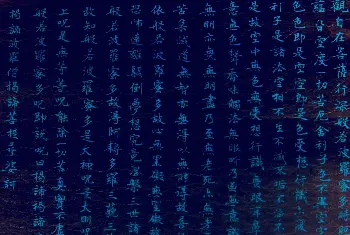 觀自在菩薩行深般若波羅蜜多時照
蘊皆空度一切苦厄舍利子色不異空
色色即是空空即是色受想行識亦復
利子是諸法空相不生不滅不垢不淨不
是故空中無色無受想行識無眼耳鼻
意無色聲香味觸法無眼界乃至無意識
無明亦無無明盡乃至無老死亦無老
苦集滅道無智亦無得以無所得故菩
依般若波羅蜜多故心無罣礙無罣礙故
恐怖遠離顛倒夢想究竟涅槃三世諸
般若波羅蜜多故得阿耨多羅三藐三
故知般若波羅蜜多是大神呪是大明呪
上呪是無等等呪能除一切苦真實不虛
般若波羅蜜多呪即說呪曰揭諦揭諦
揭諦波羅僧揭諦菩提娑訶